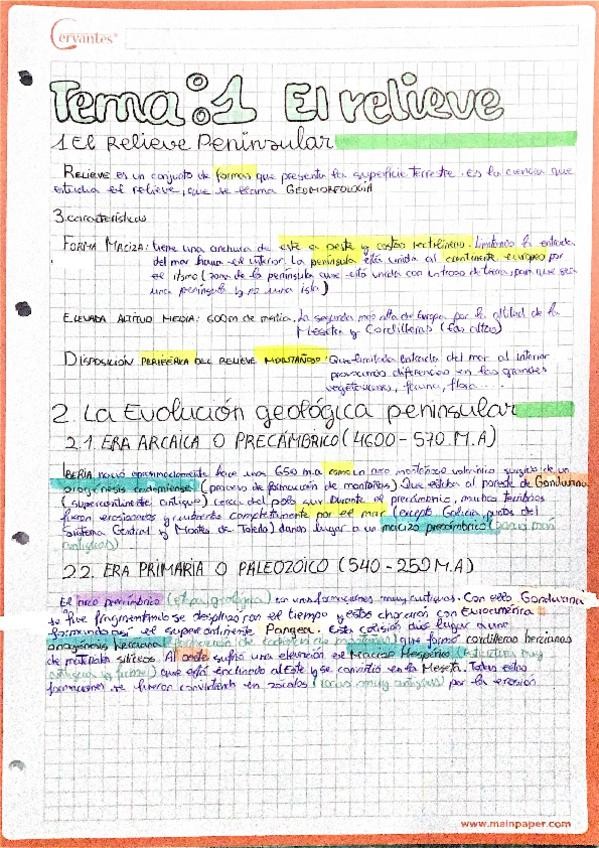 Cervantes
Tema:1 El relieve
1 El Relieve Peninsular
Relieve es un conjunto de formas que presenta la superficie terrestre. es la ciencia que
estudia el relieve, que se llama GEOMORFOLOGIA
3 características
FORMA MACIZA: tiene una anchura de este a oeste y costas rectilíneas. Limitando la entrada
del mar hacia el interior. La península está unida al continente europeo por
el itsmo (zona de la península que está unida con un trozo de tierra, para que sea
una península y no una isla)
ELEVADA ALTITUD MEDIA: 600m de media. La segunda más alta de Europa por la altitud de la
Meseta y Cordilleras (las altas)
DISPOSICIÓN PERIFÉRICA DEL RELIEVE MONTAÑOSO: Que limita la entrada del mar al interior
provocando diferencias en las grandes
vegetaciones, fauna, flora....
2. La Evolución geológica peninsular
2.1. ERA ARCAICA O PRECÁMBRICO (4600-570 M.A)
IBERIA nació aproximadamente hace unos 650 m.a como un arco montañoso volcánico surgido de un
orogénesis cadomiense (proceso de formación de montañas) Que estaba al oeste de Gondwana
(supercontinente antiguo) cerca del polo sur. Durante el precámbrico, muchos territorios
fueron erosionados y cubiertos completamente por el mar (excepto Galicia, puntos del
Sistema Central y Montes de Toledo) dando lugar a un macizo precámbrico (rocas más
antiguas)
2.2. ERA PRIMARIA O PALEOZOICO (540-250 M.A)
El arco precámbrico (etapa geológica) con unas formaciones muy antiguas. Con ello Gondwana
se fue fragmentando se desplazaron el tiempo y estos chocaron con Euroamérica
formando así el supercontinente Pangea. Esta colisión dio lugar a una
orogénesis herciniana que formó cordilleras hercianas
de materiales silíceos. Al oeste sufrió una elevación el Macizo Hespérico (estructura muy
antigua y firme) que está inclinado al Este y se convirtió en la Meseta. Todas estas
formaciones se fueron convirtiendo en zócalos (rocas muy antiguas) por la erosión
www.mainpaper.com